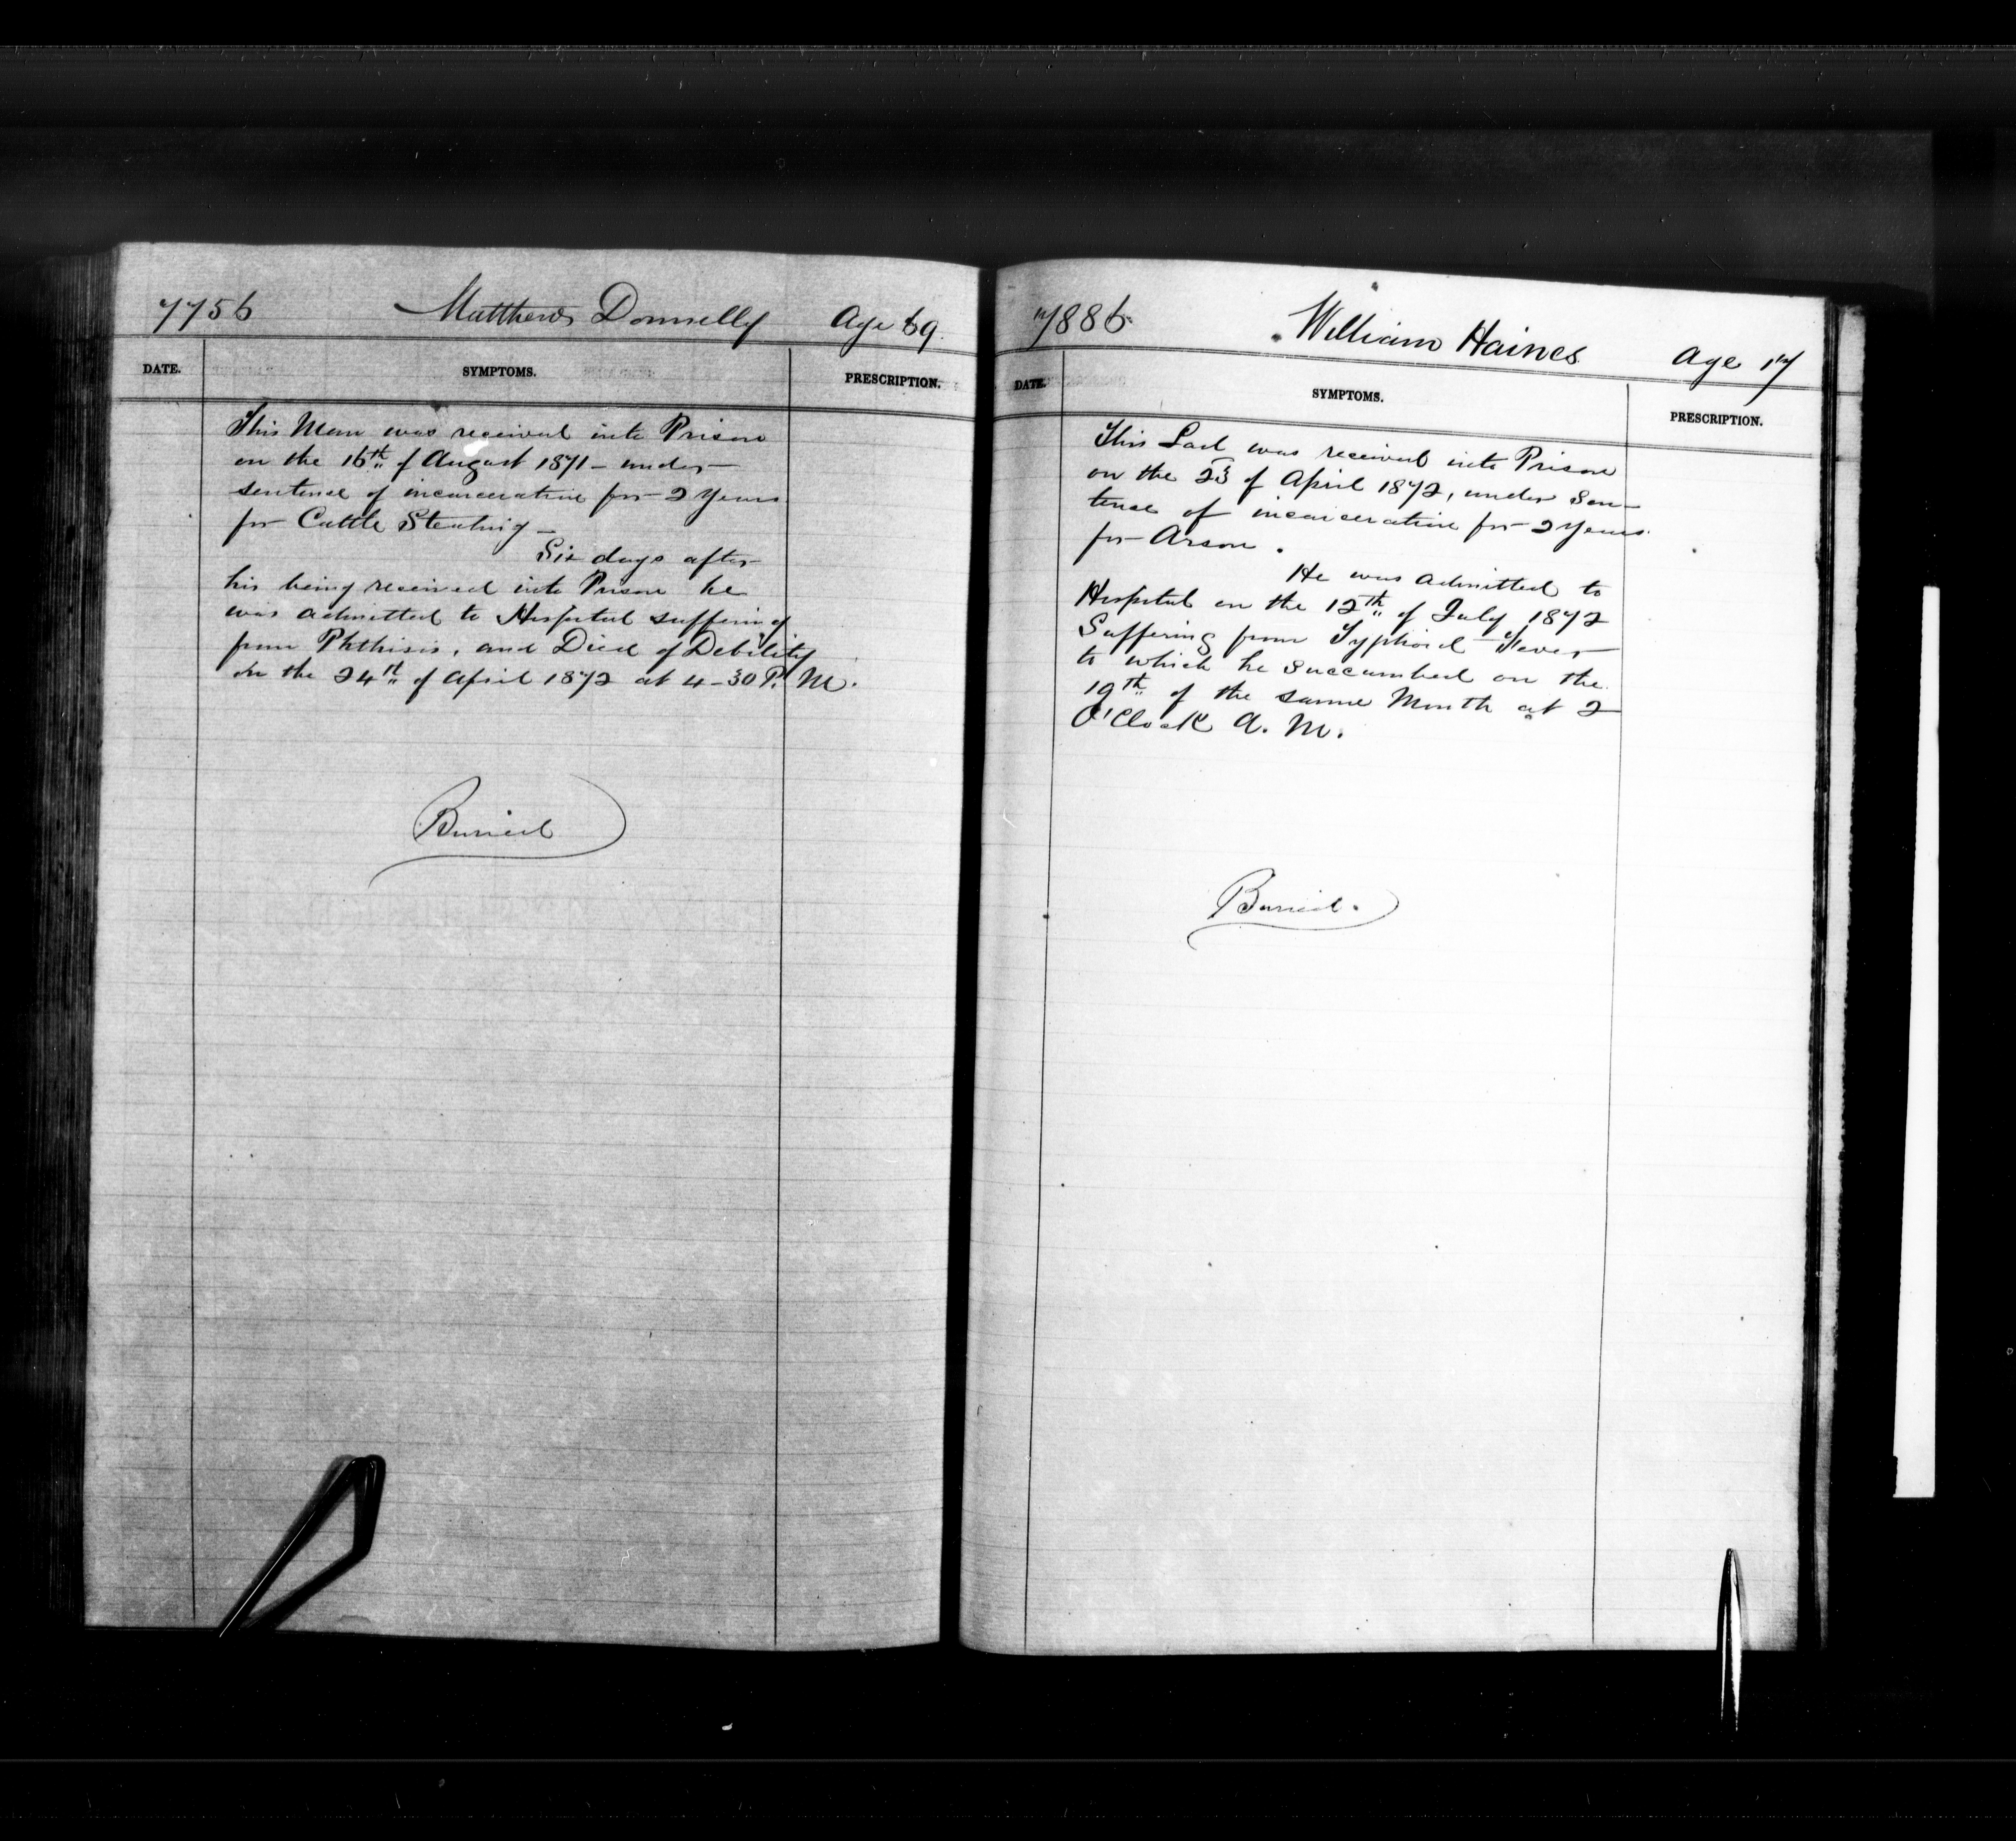 7756 Matthew Donnelly Age 69.
DATE. SYMPTOMS. PRESCRIPTION.
This Man was received into Prison
on the 16th of August 1871 - under
sentence of incarceration for 2 Years
for Cattle Stealing -
Six days after
his being received into Prison he
was admitted to Hospital suffering
from Phthisis, and Died of Debility
on the 24th of April 1872 at 4-30 P. M.
Buried
7886 William Haines Age 17
DATE. SYMPTOMS. PRESCRIPTION.
This Lad was received into Prison
on the 23 of April 1872, under Sen-
tence of incarceration for 2 Years
for Arson.
He was admitted to
Hospital on the 12th of July 1872
Suffering from Typhoid Fever
to which he succumbed on the
19th of the same Month at 2
O'Clock A. M.
Buried.